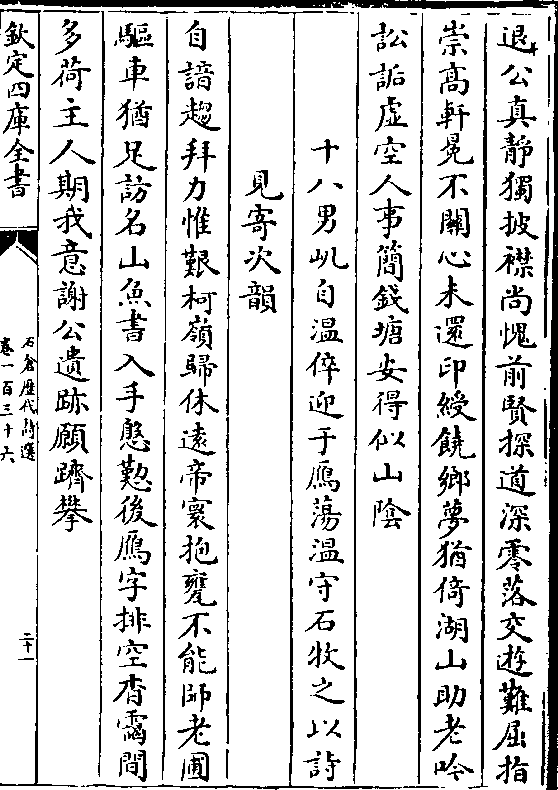 退公真靜獨披襟尚愧前賢探道深零落交遊難屈指
崇髙軒冕不關心未還印綬饒鄉夢猶倚湖山助老吟
訟詬虛空人事簡錢塘安得似山陰
十八男㞦自温倅迎于鴈蕩温守石牧之以詩
見寄次韻
自諳趨拜力惟艱柯嶺歸休遠帝寰抱甕不能師老圃
驅車猶足訪名山魚書入手慇懃後鴈字排空杳靄間
多荷主人期我意謝公遺跡願躋攀
欽定四庫全書
石倉歴代詩選
卷一百三十六
二十一